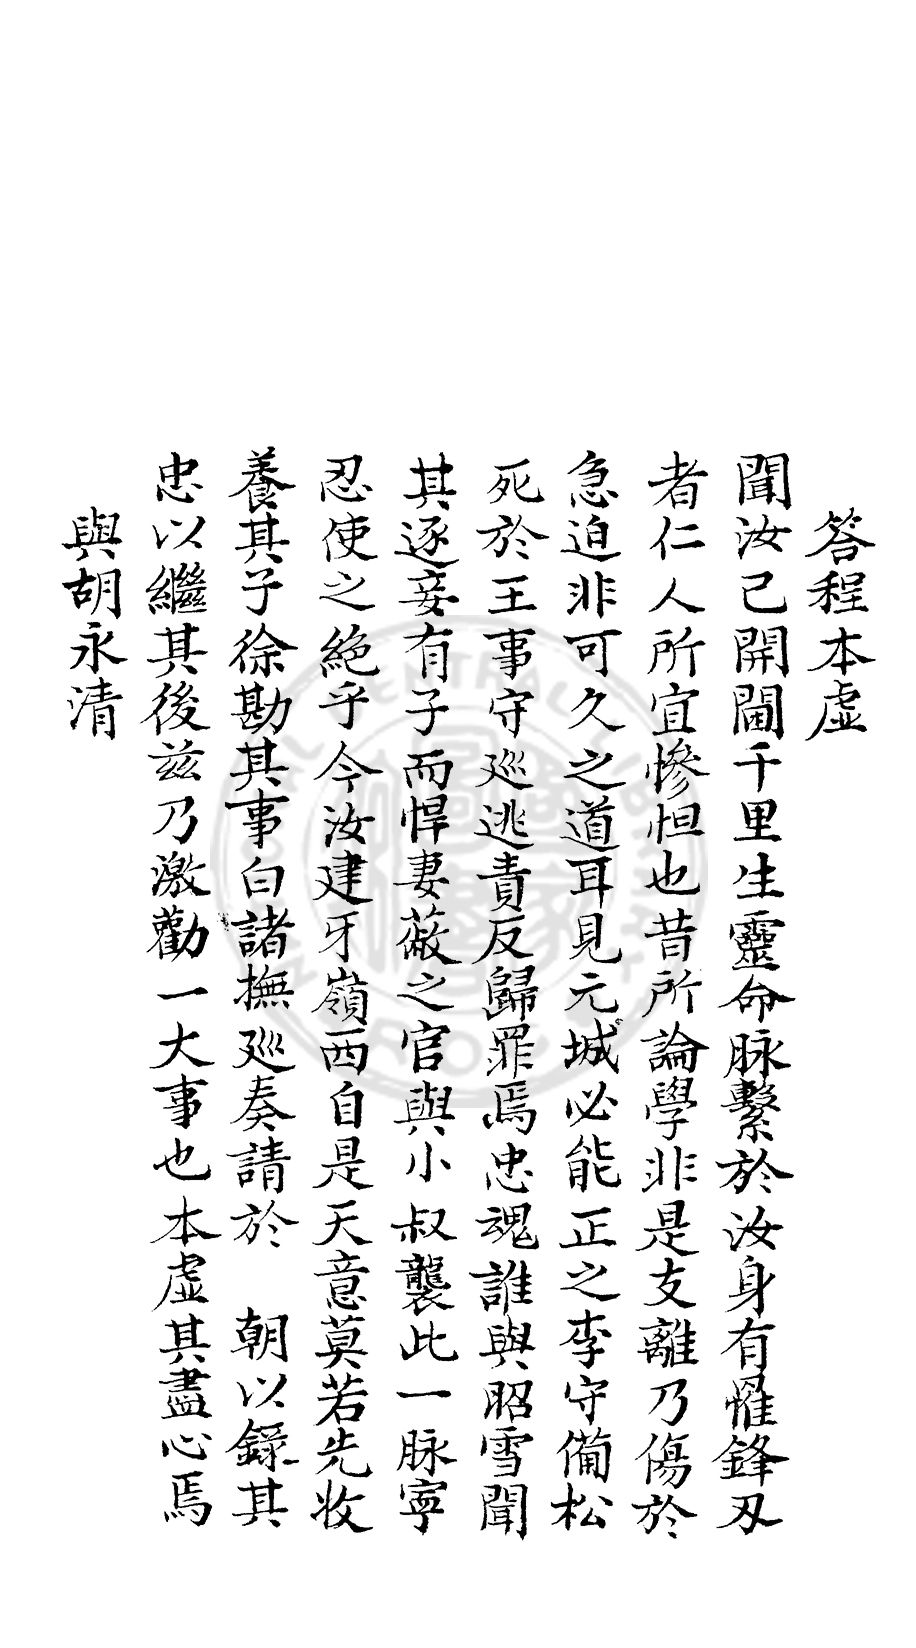 答程本虛
聞汝已開閫千里生靈命脉繫於汝身有罹鋒刃
者仁人所宜慘怛也昔所論學非是支離乃傷於
急迫非可久之道耳見元城必能正之李守備松
死於王事守廵逃責反歸罪焉忠魂誰與昭雪聞
其逐妾有子而悍妻蔽之官與小叔襲此一脉寧
忍使之絶乎今汝建牙嶺西自是天意莫若先收
養其子徐勘其事白諸撫廵奏請於　朝以錄其
忠以繼其後兹乃激勸一大事也本虛其盡心焉
與胡永清